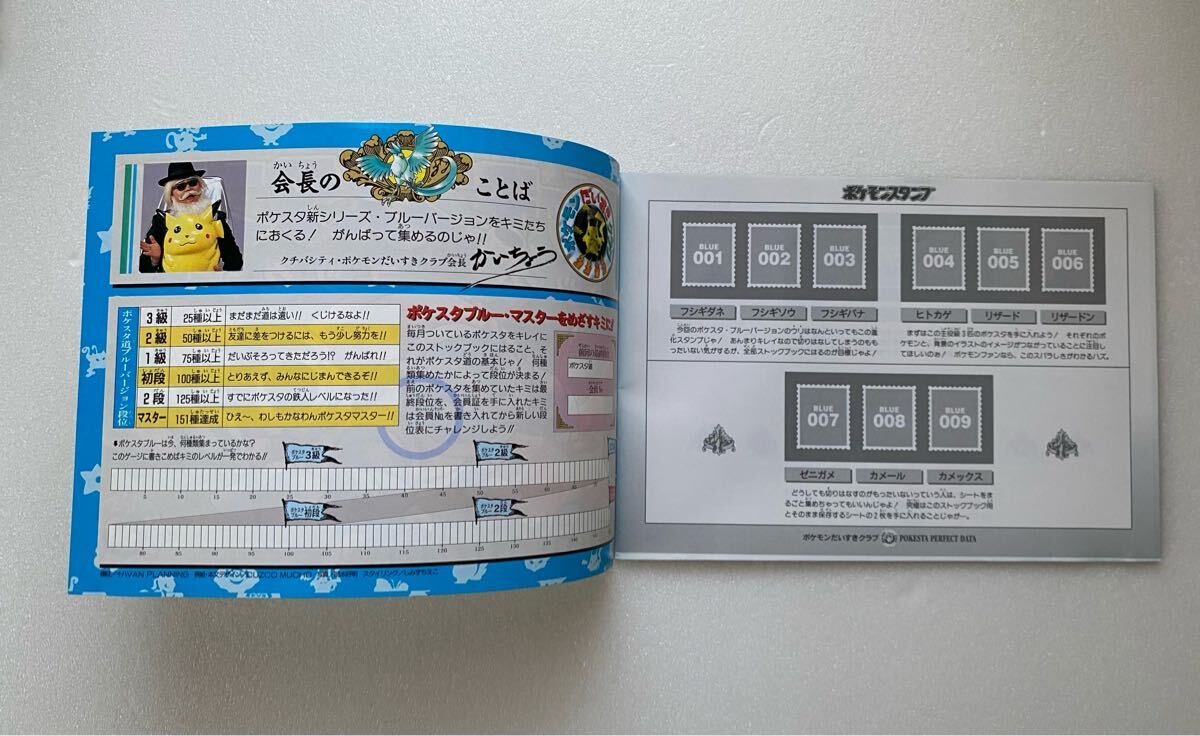 会長のことば
かいちょう
ポケスタ新シリーズ・ブルーバージョンをキミたち
におくる! がんばって集めるのじゃ!!
クチバシティ・ポケモンだいすきクラブ会長 かいちょう
ポケモンだいすき
ポケスタ道ブルーバージョン段位
3級 25種以上 まだまだ道は遠い!! くじけるなよ!!
2級 50種以上 友達に差をつけるには、もう少し努力を!!
1級 75種以上 だいぶそろってきただろう!? がんばれ!!
初段 100種以上 とりあえず、みんなにじまんできるぞ!!
2段 125種以上 すでにポケスタの鉄人レベルになった!!
マスター 151種達成 ひえ〜、わしもかなわんポケスタマスター!!
ポケスタブルー・マスターをめざすキミに!
毎月ついているポケスタをキレイに
このストックブックにはること、そ
れがポケスタ道の基本じゃ! 何種
類集めたかによって段位が決まる!
前のポケスタを集めていたキミは最
終段位を、会員証を手に入れたキミ
は会員No.を書き入れてから新しい段
位表にチャレンジしよう!!
ポケスタ道
会員No.
ポケスタブルーは今、何種類集まっているかな?
このゲージに書きこめばキミのレベルが一発でわかる!!
ポケスタブルー 3級
ポケスタブルー 2級
5 10 15 20 25 30 35 40 45 50 55 60
ポケスタブルー 初段
ポケスタブルー 2段
80 85 90 95 100 105 110 115 120 125 130 135 140
ポケモンスタンプ
BLUE 001
BLUE 002
BLUE 003
BLUE 004
BLUE 005
BLUE 006
フシギダネ フシギソウ フシギバナ
ヒトカゲ リザード リザードン
今回のポケスタ・ブルーバージョンのウリはなんといってもこの進
化スタンプじゃ! あんまりキレイなので切りはなしてしまうのもも
ったいない気がするが、全部ストックブックにはるのが目標じゃよ!
まずはこの主役級3匹のポケスタを手に入れよう! それぞれのポ
ケモンと、背景のイラストのイメージがつながっていることに注目し
てほしいのぉ! ポケモンファンなら、このスバラしさがわかるハズ。
BLUE 007
BLUE 008
BLUE 009
ゼニガメ カメール カメックス
どうしても切りはなすのがもったいないっていう人は、シートをま
るごと集めちゃってもいいんじゃよ! 究極はこのストックブック用
とそのまま保存するシートの2枚を手に入れることじゃがー。
ポケモンだいすきクラブ POKESTA PERFECT DATA